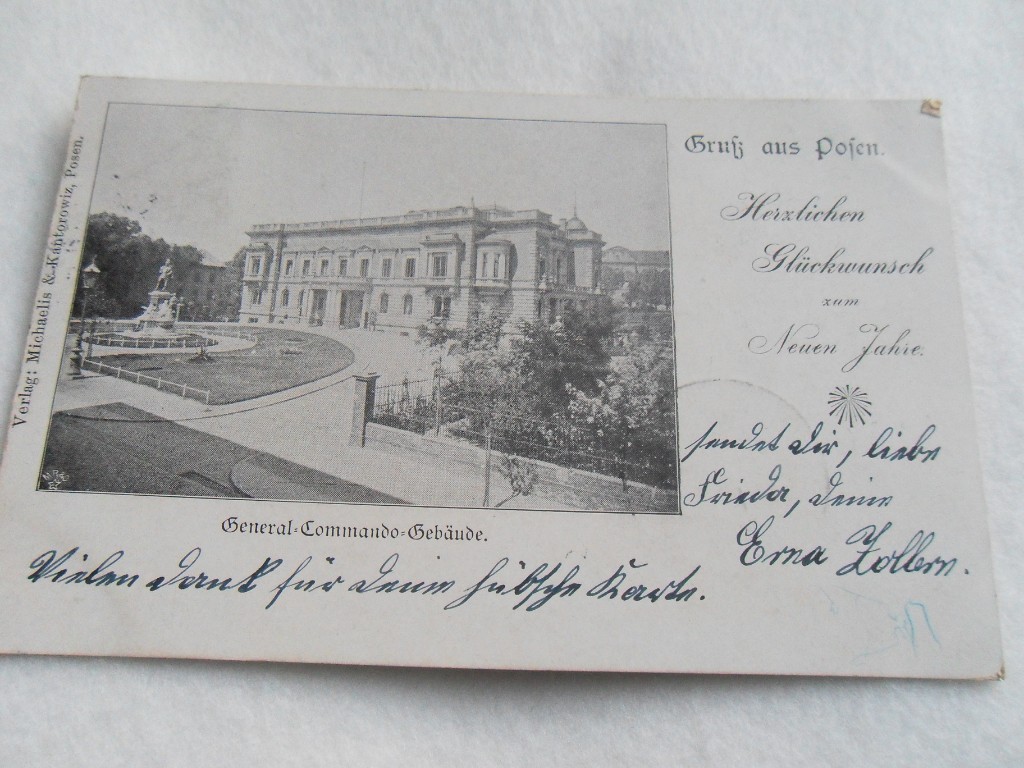 Verlag: Michaelis & Kantorowiz, Posen.
Gruß aus Posen.
Herzlichen
Glückwunsch
zum
Neuen Jahre.
sendet dir, liebe
Frieda, deine
Erna
General-Commando-Gebäude.
Vielen dank für deine hübsche Karte.